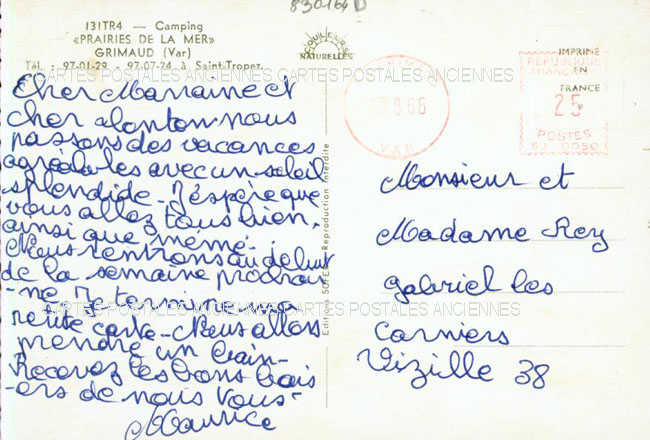 830164 D
131TR4 — Camping
«PRAIRIES DE LA MER»
GRIMAUD (Var)
Tél. : 97-01-29 - 97-07-24 à Saint-Tropez
COULEURS
NATURELLES
IMPRIMÉ
EN
FRANCE
REPUBLIQUE
FRANCAISE
25
POSTES
13.8.66
VAR
CARTES POSTALES ANCIENNES CARTES POSTALES ANCIENNES
Cher Marraine et
cher tonton nous
passons des vacances
agréables avec un soleil
splendide - J'espère que
vous allez tous bien,
ainsi que mémé.
Nous rentrons au début
de la semaine prochai-
-ne Je termine ma
petite carte - Nous allons
prendre un bain -
Recevez les bons bais
-ers de nous vous -
Maurice
Editions - Reproduction Interdite
Monsieur et
Madame Rey
Gabriel les
Corniers
Vizille 38
CARTES POSTALES ANCIENNES CARTES POSTALES ANCIENNES